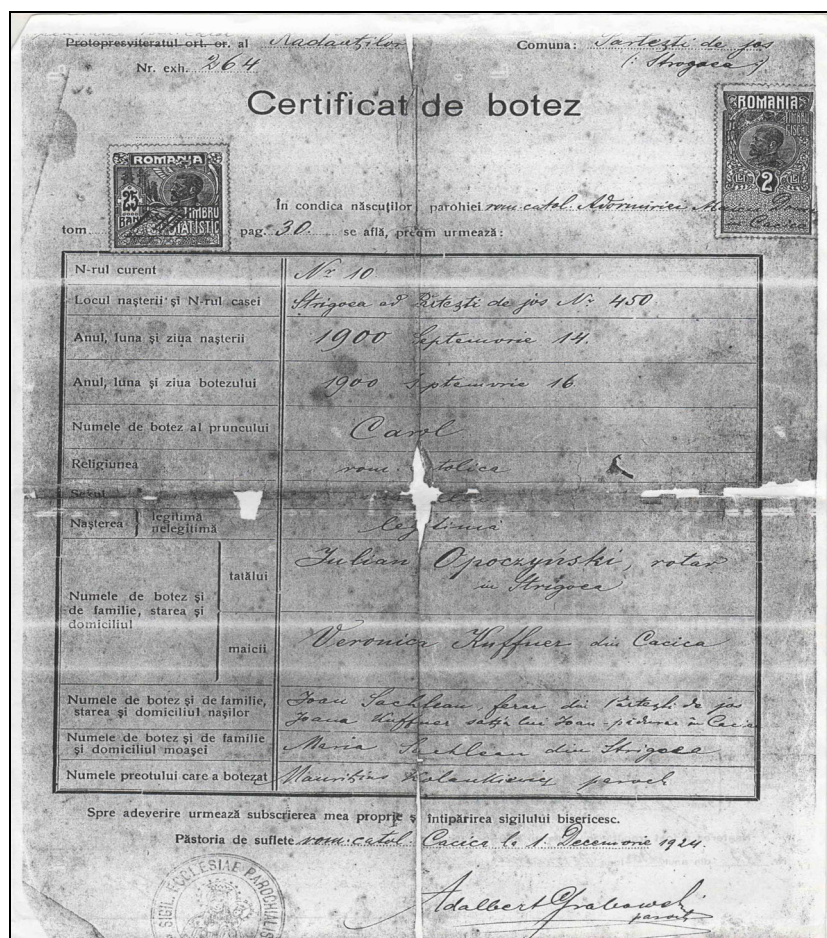 Protopresviteratul ort. or. al Radauților Comuna: Partești de jos
Nr. exh. 264 (: Strogoea :)
Certificat de botez
ROMANIA
25
BANI
TIMBRU
STATISTIC
ROMANIA
TIMBRU
FISCAL
2
În condica născuților parohiei rom. catol. Adormirei Maicii
Cacica
tom. pag. 30. se află, precum urmează:
N-rul curent Nr 10
Locul nașterii și N-rul casei Strigoea ad Partești de jos Nr 450.
Anul, luna și ziua nașterii 1900 Septemvrie 14.
Anul, luna și ziua botezului 1900 Septemvrie 16
Numele de botez al pruncului Carol
Religiunea rom. tolica
Sexul
Nașterea legitimă legitimă
nelegitimă
tatălui Iulian Opoczyński, rotar
in Strigoea
Numele de botez și
de familie, starea și
domiciliul
maicii Veronica Kuffner din Cacica
Numele de botez și de familie, Ioan Sachlean, ferar din Partești de jos
starea și domiciliul nașilor Ioana Kuffner soția lui Ioan pădurar în Cacica
Numele de botez și de familie
și domiciliul moașei Maria Sachlean din Strigoea
Numele preotului care a botezat Mauritius Kolankiewicz paroch
Spre adeverire urmează subscrierea mea proprie și întipărirea sigilului bisericesc.
Păstoria de suflete rom. catol. Cacica la 1. Decemvrie 1924.
SIGIL. ECCLESIAE PAROCHIALIS
Adalbert Grabowski
paroh